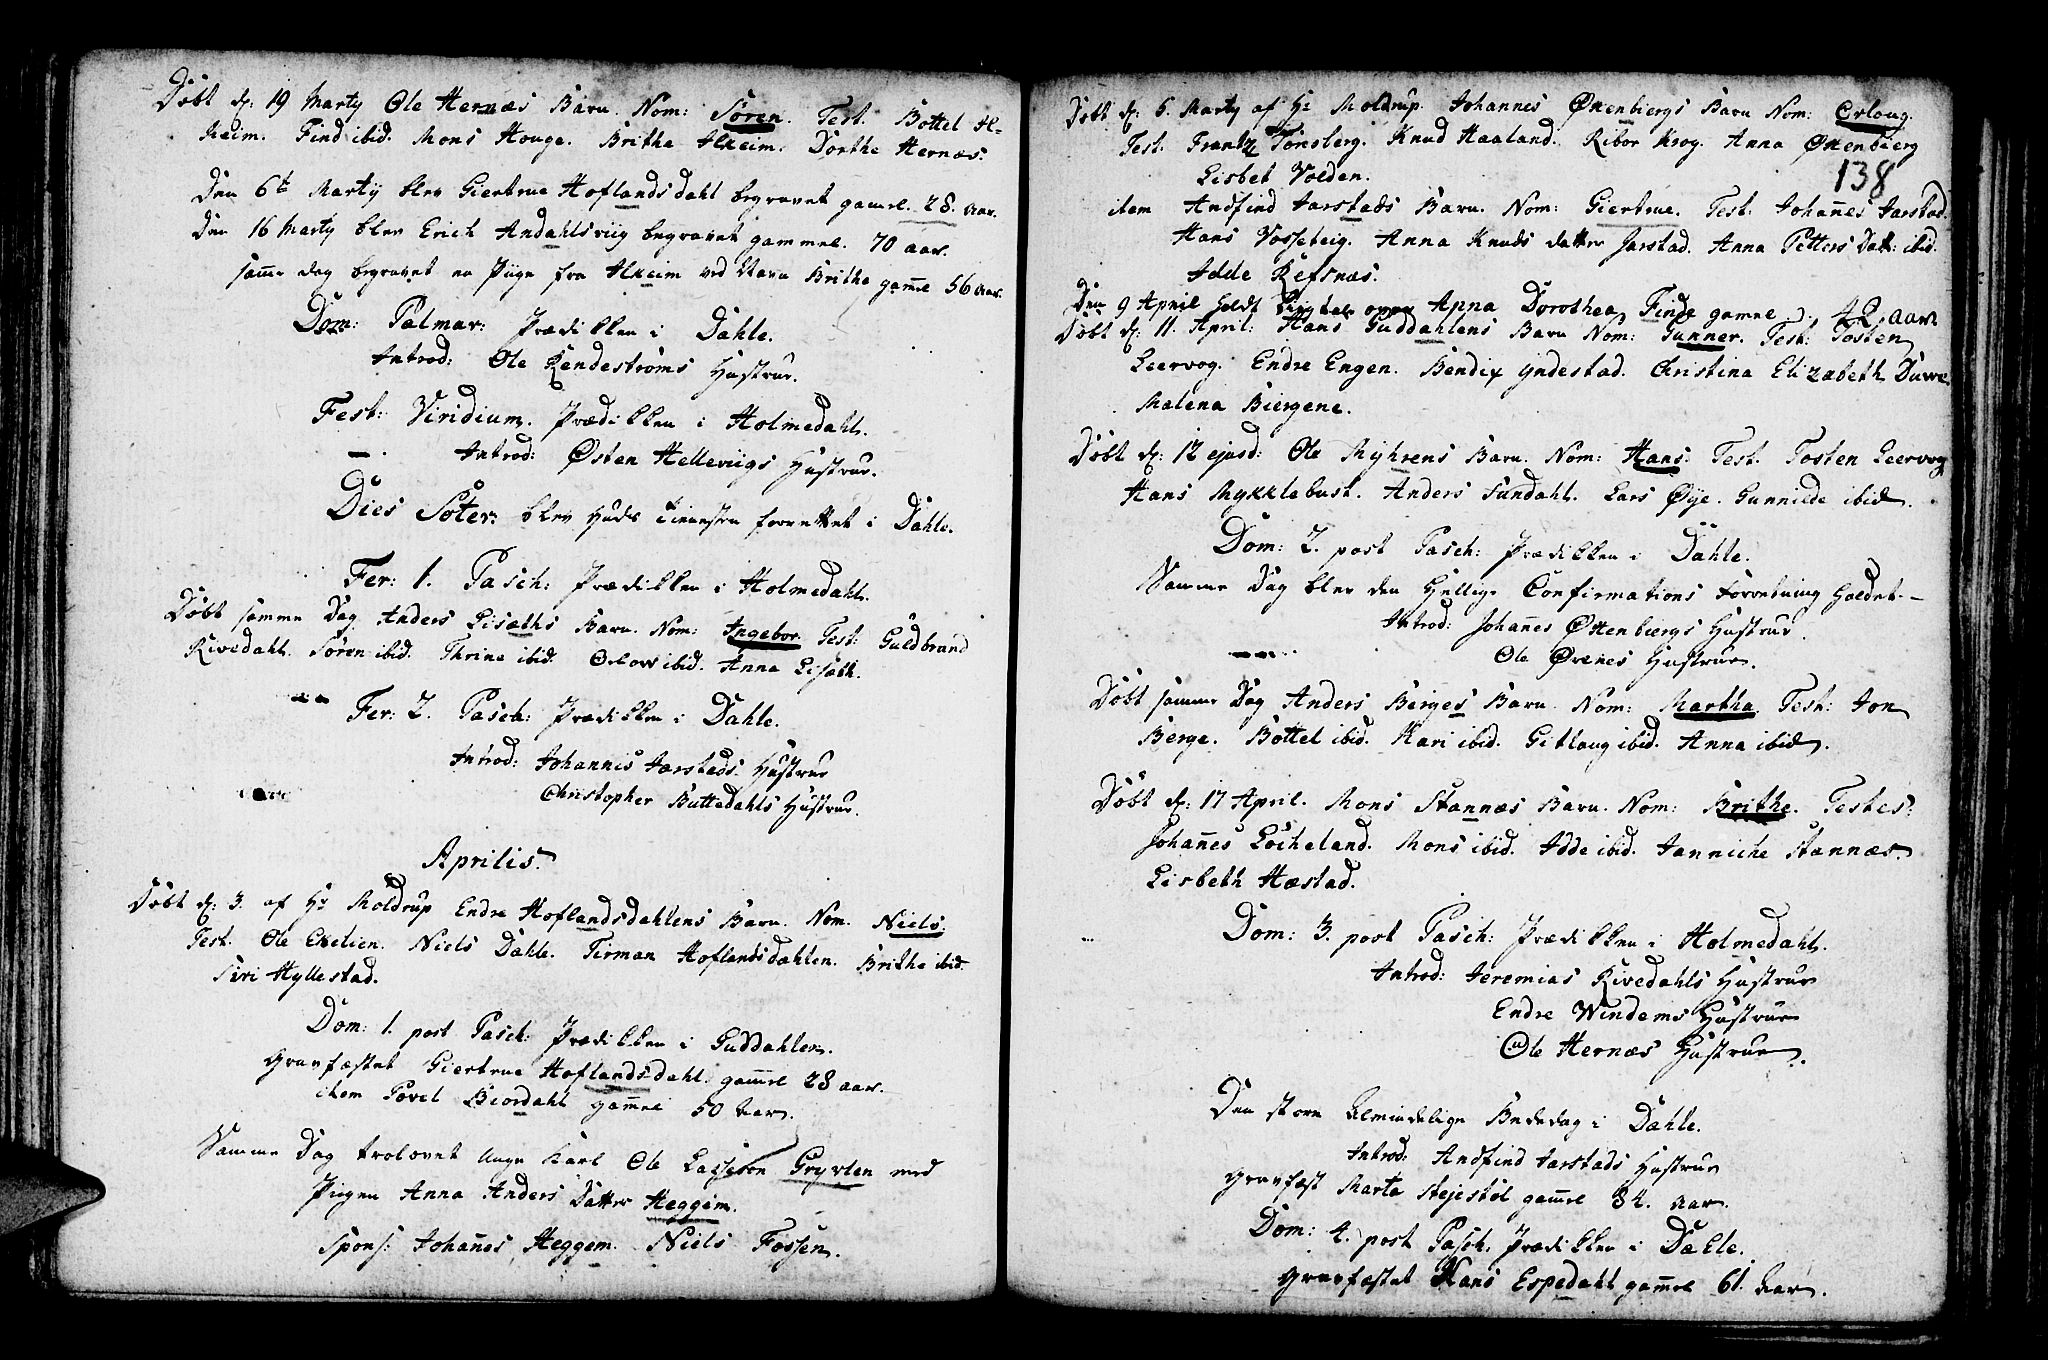 Döbt d: 19 Marty Ole Hernæs Barn. Nom: Sören. Test. Bottel Al-
keim. Find ibid. Mons Houge. Brithe Alkeim. Dorthe Hernæs.
Den 6te Martij blev Giertrue Hoflandsdahl begravet gamel. 28. aar.
Den 16 Marty blev Erich Andahlsviig begravet gammel. 70 aar.
samme dag begravet en Piige fra Alkeim ved Navn Brithe gam̅el 56 aar.
Dom: Palmar: Prædikken i Dahle.
Introd: Ole Rendeströms Hustrue.
Fest: Viridium. Prædikken i Holmedahl.
Introd: Østen Helleviigs Hustrue.
Dies Söter: blev Guds Tienesten forrettet i Dahle.
Fer: 1. Pasch: Prædikken i Holmedahl.
Döbt samme Dag Anders Lisæths Barn. Nom: Ingebor. Test: Guldbrand
Rivedahl. Sören ibid. Thrine ibid. Orlow ibid. Anna Lisæth.
Fer: 2. Pasch: Prædikken i Dahle.
Introd: Johannis Jarstads Hustrue
Christopher Buttedahls Hustrue.
Aprilis.
Döbt d: 3. af Hr Moldrup Endre Hoflandsdahlens Barn. Nom. Niels.
Test. Ole Ekelien. Niels Dahle. Tirman Hoflandsdahlen. Brithe ibid.
Siri Hyllestad.
Dom: 1. post Pasch: Prædikken i Guddahlen.
Gravfæstet Giertrue Hoflandsdahl. gam̅el 28 aar.
item Povel Biordahl gam̅el 50 Aar.
Samme Dag trolovet unge Karl Ole Larsson Gryvlen med
Piigen Anna Anders Datter Heggem.
Spons: Johan̅es Heggem. Niels Fossen.
Döbt d: 6. Marty af Hr Moldrup. Johannes Øttenbiergs Barn Nom: Orloug.
138
Test. Frantz Tönsberg. Knud Haaland. Ribor Krog. Anna Øttenbierg
Lisbet Volden.
item Andfind Jarstads Barn. Nom: Giertrue. Test: Johan̅es Jarstad.
Hans Vosseteig. Anna Knuds datter Jarstad. Anna Petters Datt: ibid.
Adde Refsnæs.
Den 9 April holdt Ligtale over Anna Dorothea Finde gamel 42 aar
Döbt d: 11. April: Hans Guddahlens Barn Nom: Gunner. Test: Tosten
Leervog. Endre Engen. Bendix Yndestad. Christina Elizabeth Duwe
Malena Biergene.
Döbt d: 12 ejusd: Ole Myhrens Barn. Nom: Hans. Test. Tosten Leervog
Hans Mykklebust. Anders Sundahl. Lars Øije. Gunnilde ibid.
Dom: 2. post Pasch: Prædikken i Dahle.
Samme Dag blev den Hellige Confirmations Forretning holdet.
Introd: Johan̅es Øttenbiergs Hustrue.
Ole Ørenes Hustrue.
Döbt samme Dag Anders Berges Barn. Nom: Martha. Test: Jon
Berge. Bottel ibid. Kari ibid. Gitloug ibid. Anna ibid.
Döbt d: 17 April. Mons Stannæs Barn. Nom: Brithe. Testes:
Johan̅es Löcheland. Mons ibid. Adde ibid. Janniche Stannæs.
Lisbeth Hæstad.
Dom: 3. post Pasch: Prædikken i Holmedahl.
Introd: Jeremias Rivedahls Hustrue
Endre Windems Hustrue
Ole Hernæs Hustrue.
Den store Almindelige Bededag i Dahle.
Introd: Andfind Jarstads Hustrue
Gravfæst Marte Stejestöl gam̅el 84. aar.
Dom: 4. post Pasch. Prædikken i Dahle.
Gravfæstet Hans Espedahl gam̅el 61. aar.